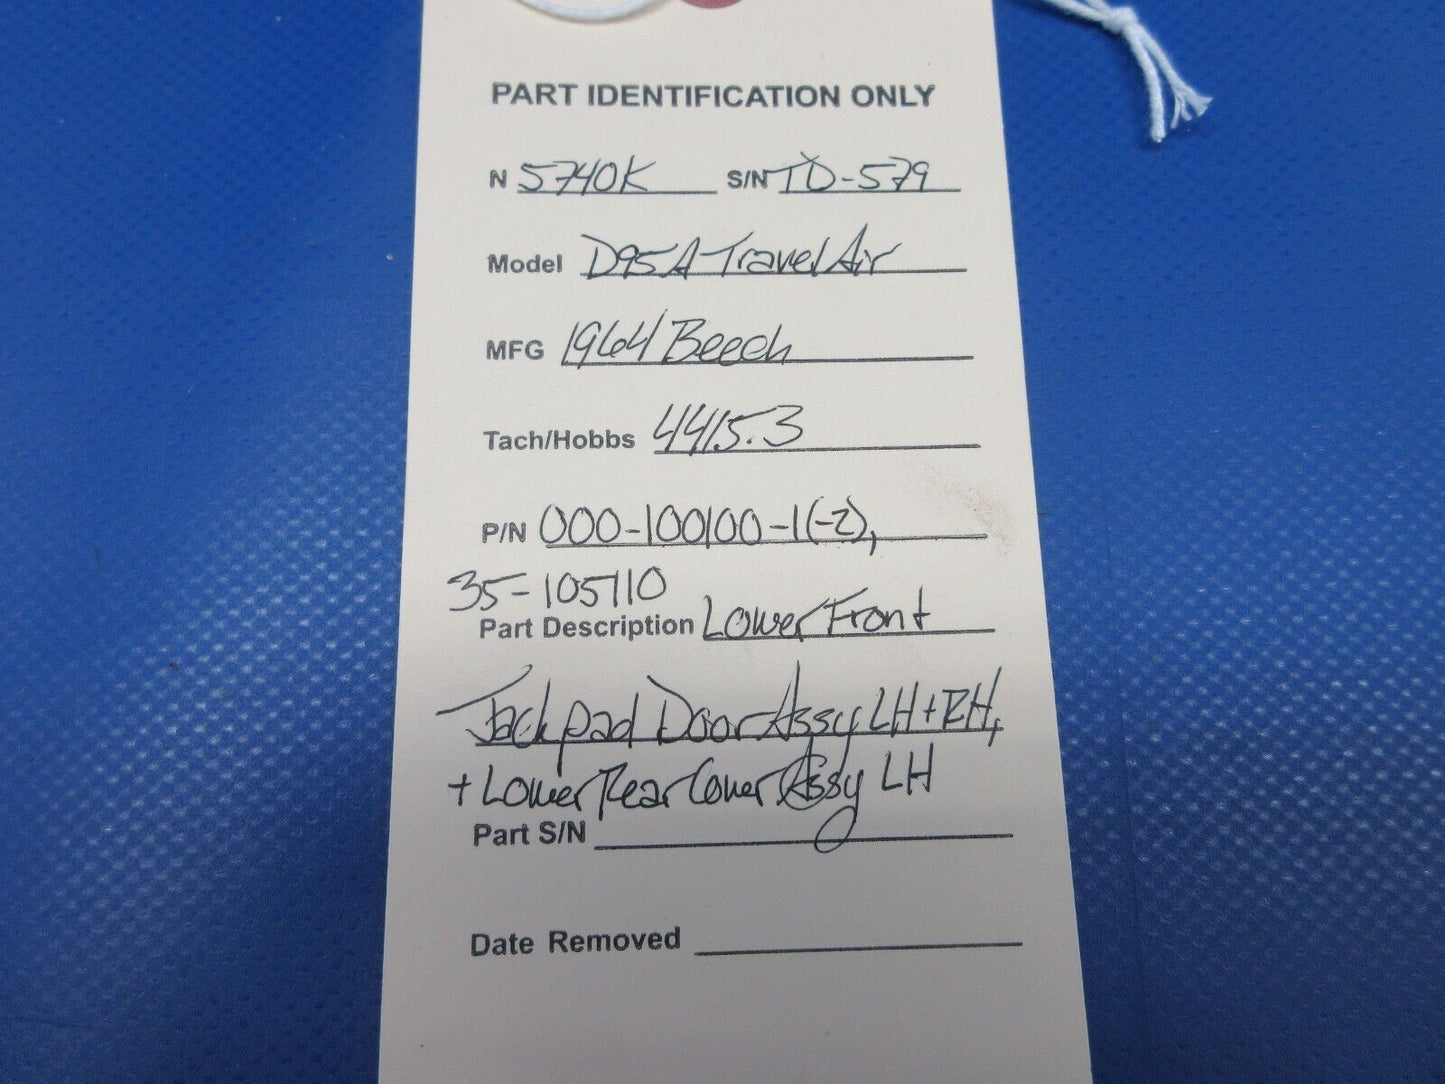 PART IDENTIFICATION ONLY
N 5740K S/N TD-579
Model D95A Travel Air
MFG 1964 Beech
Tach/Hobbs 4415.3
P/N 000-100100-1(-2),
35-105110
Part Description Lower Front
Jack pad Door Assy LH + RH,
+ Lower Rear Cover Assy LH
Part S/N
Date Removed